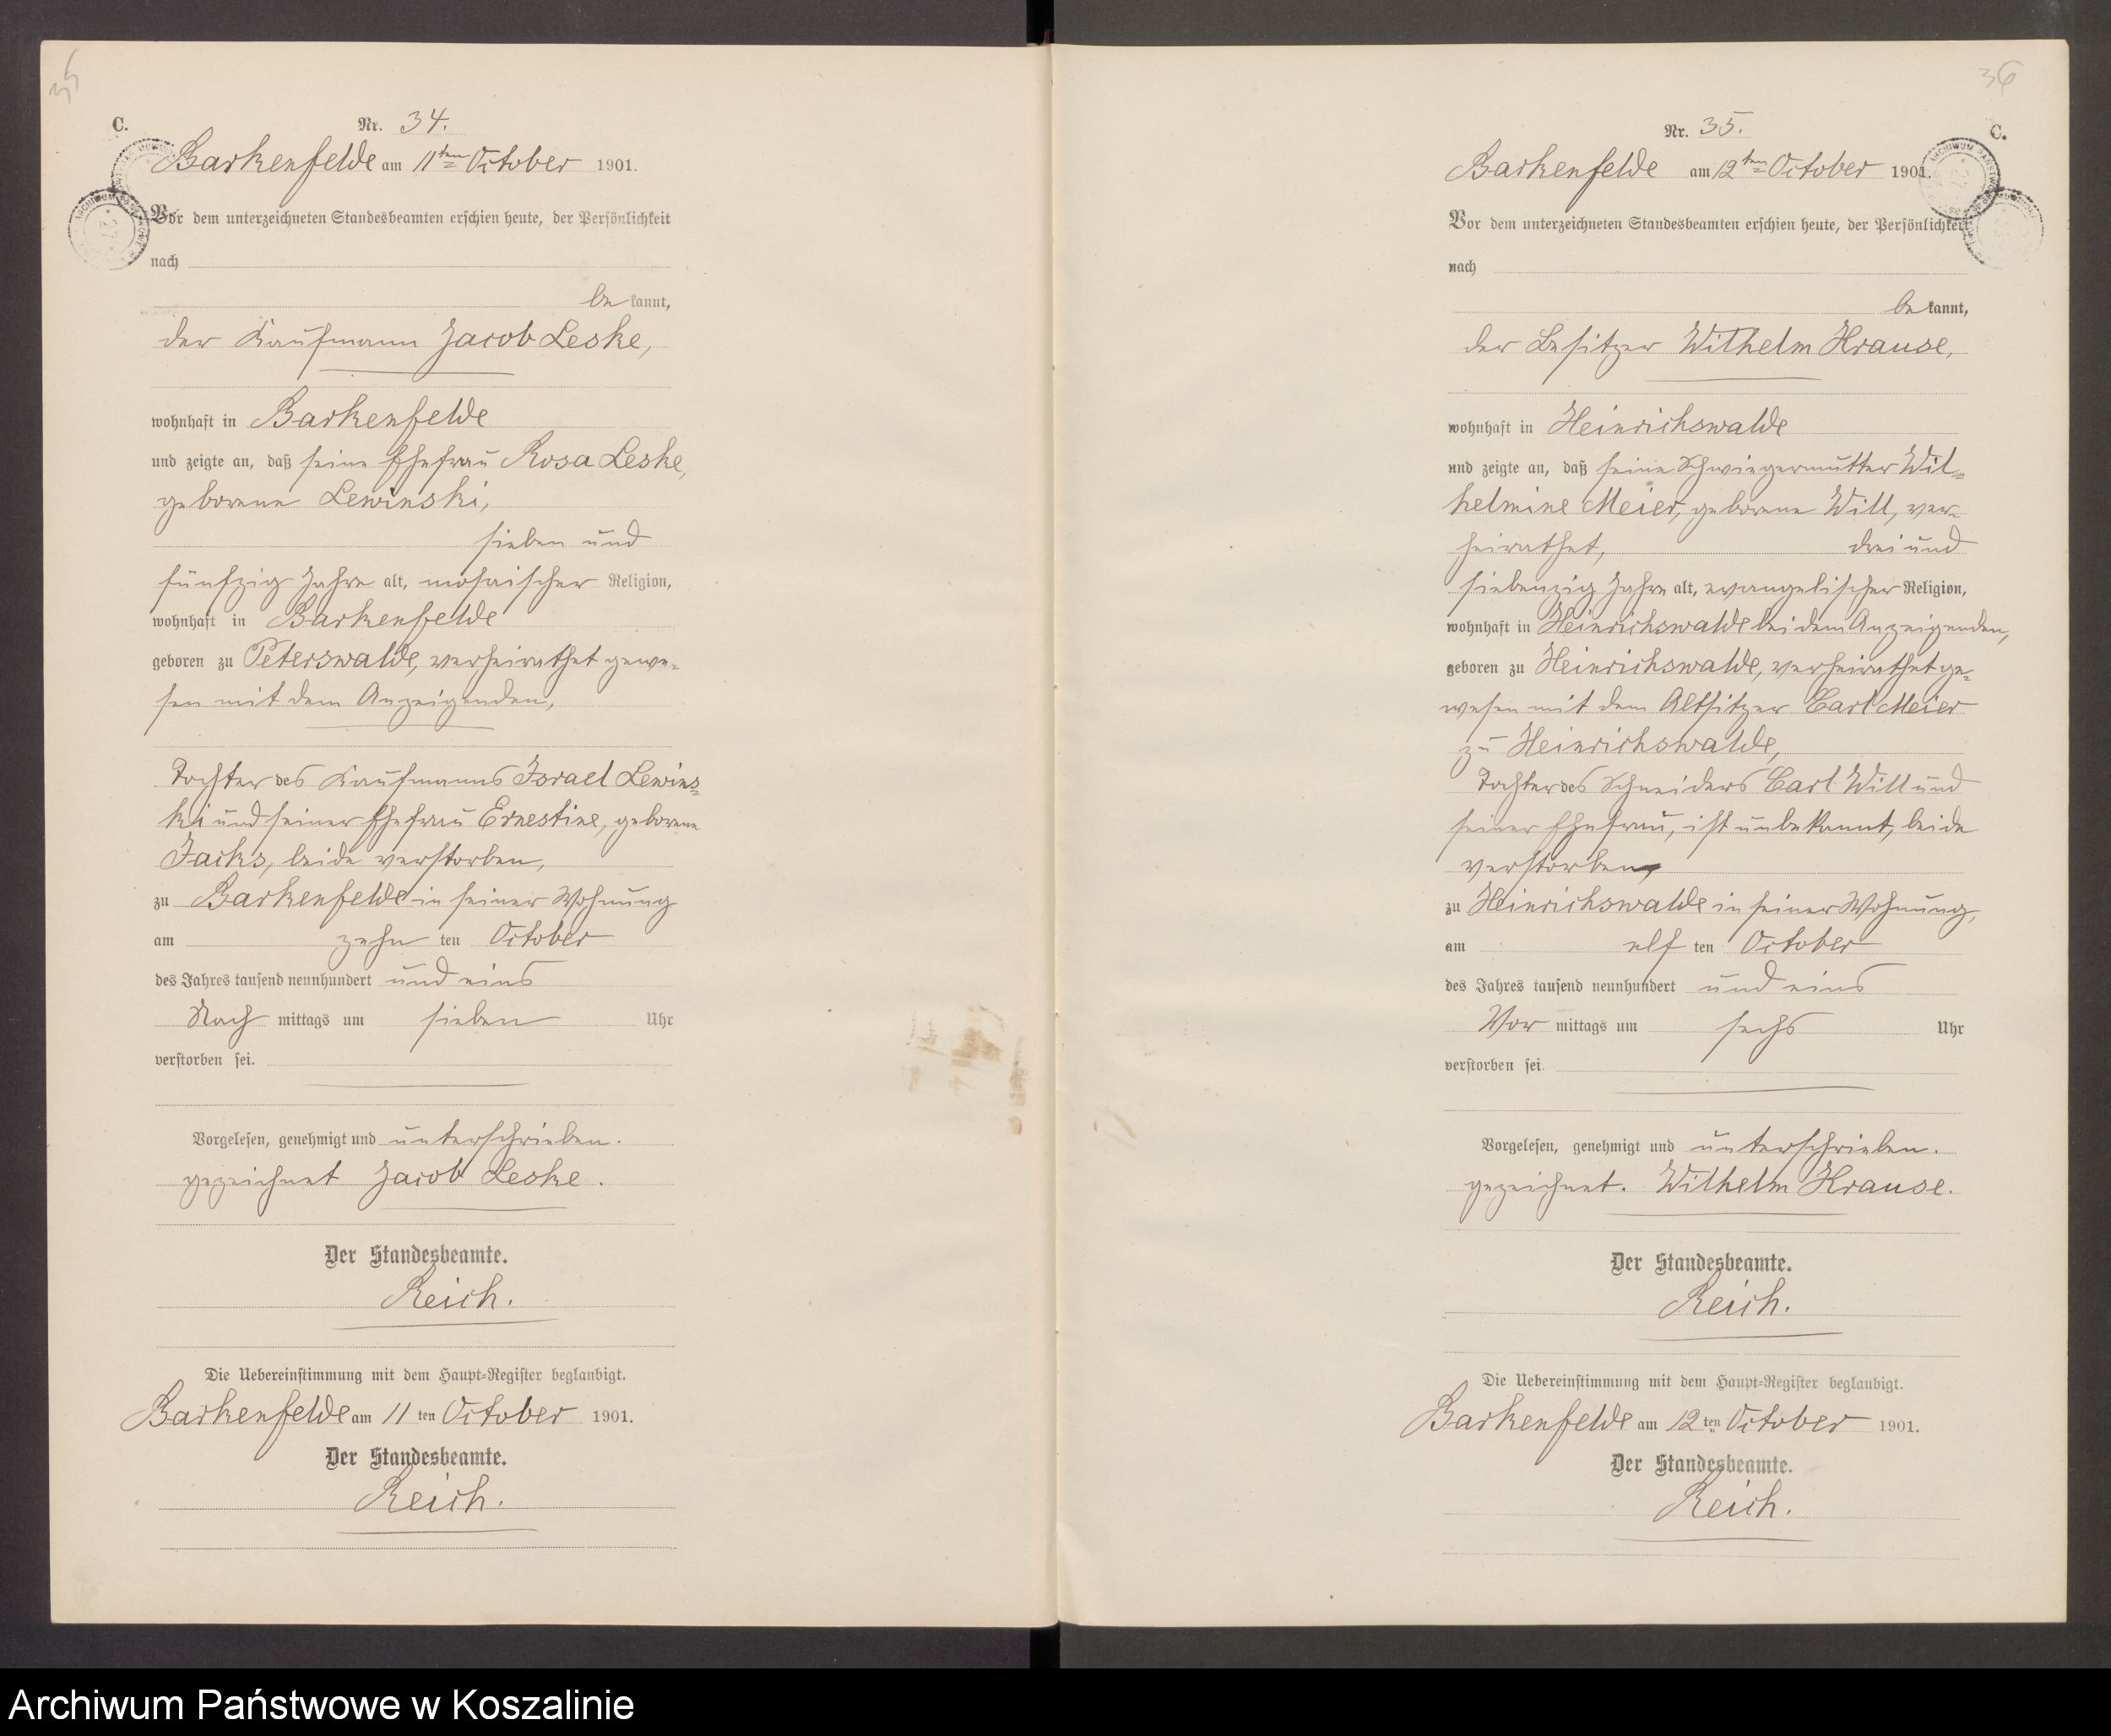 35
C.
Nr. 34.
Barkenfelde am 11ten October 1901.
Vor dem unterzeichneten Standesbeamten erschien heute, der Persönlichkeit
nach
bekannt,
der Kaufmann Jacob Leske,
wohnhaft in Barkenfelde
und zeigte an, daß seine Ehefrau Rosa Leske,
geborene Lewinski,
sieben und
fünfzig Jahre alt, mosaischer Religion,
wohnhaft in Barkenfelde
geboren zu Peterswalde, verheirathet gewe-
sen mit dem Anzeigenden,
Tochter des Kaufmanns Israel Lewins-
ki und seiner Ehefrau Ernestine, geborene
Jacks, beide verstorben,
zu Barkenfelde in seiner Wohnung
am zehn ten October
des Jahres tausend neunhundert und eins
Nach mittags um sieben Uhr
verstorben sei.
Vorgelesen, genehmigt und unterschrieben.
gezeichnet Jacob Leske.
Der Standesbeamte.
Reich.
Die Uebereinstimmung mit dem Haupt-Register beglaubigt.
Barkenfelde am 11 ten October 1901.
Der Standesbeamte.
Reich.
36
C.
Nr. 35.
Barkenfelde am 12ten October 1901.
Vor dem unterzeichneten Standesbeamten erschien heute, der Persönlichkeit
nach
bekannt,
der Besitzer Wilhelm Krause,
wohnhaft in Heinrichswalde
und zeigte an, daß seine Schwiegermutter Wil-
helmine Meier, geborene Will, ver-
heirathet, drei und
siebenzig Jahre alt, evangelischer Religion,
wohnhaft in Heinrichswalde bei dem Anzeigenden,
geboren zu Heinrichswalde, verheirathet ge-
wesen mit dem Altsitzer Carl Meier
zu Heinrichswalde,
Tochter des Schneiders Carl Will und
seiner Ehefrau, ist unbekannt, beide
verstorben,
zu Heinrichswalde in seiner Wohnung,
am elf ten October
des Jahres tausend neunhundert und eins
Vor mittags um sechs Uhr
verstorben sei.
Vorgelesen, genehmigt und unterschrieben.
gezeichnet. Wilhelm Krause.
Der Standesbeamte.
Reich.
Die Uebereinstimmung mit dem Haupt-Register beglaubigt.
Barkenfelde am 12 ten October 1901.
Der Standesbeamte.
Reich.
Archiwum Państwowe w Koszalinie